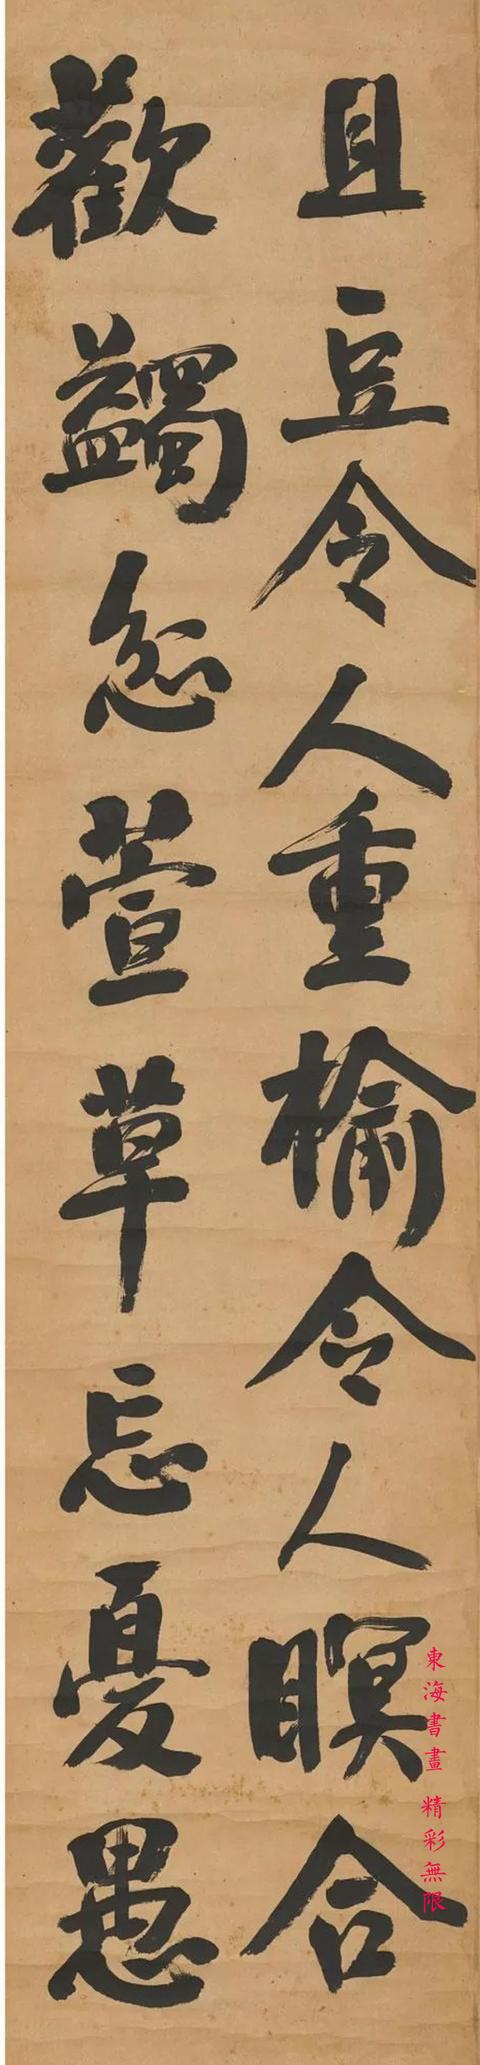 且豆令人重榆令人瞑合
歡蠲忿萱草忘憂愚
東海書畫 精彩無限